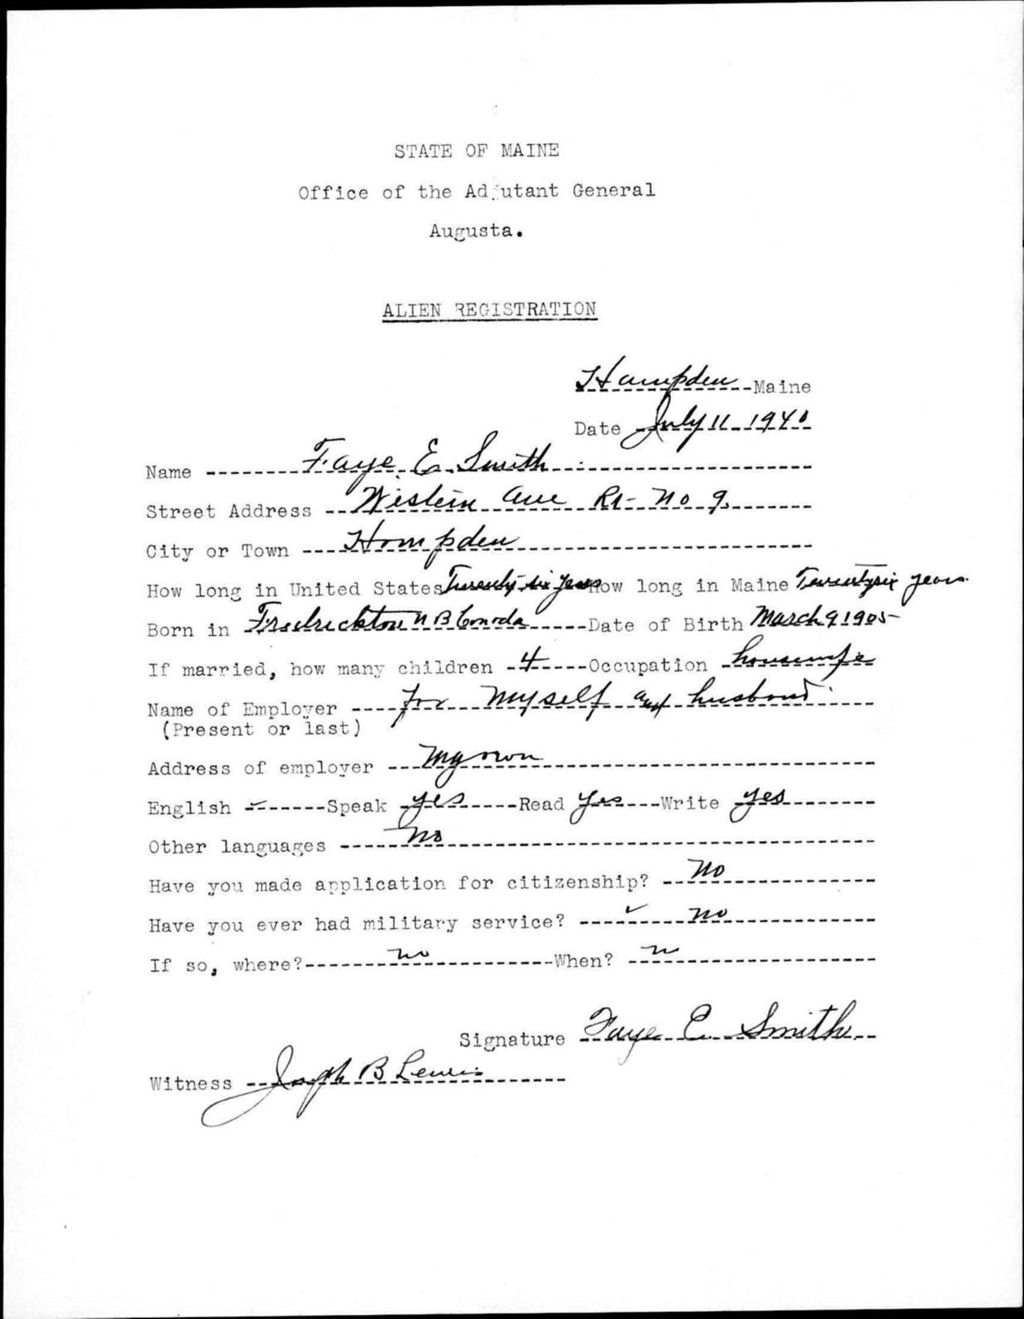 STATE OF MAINE
Office of the Adjutant General
Augusta.
ALIEN REGISTRATION
Hampden Maine
Date July 11 1940
Name Faye E. Smith
Street Address Western Ave Rt- No 9.
City or Town Hampden
How long in United States Twenty six years How long in Maine Twentysix years
Born in Fredrickton N B Canada Date of Birth March 9 1905
If married, how many children 4 Occupation housewife
Name of Employer for myself and husband
(Present or last)
Address of employer My own
English ✓ Speak yes Read Yes Write yes
Other languages No
Have you made application for citizenship? No
Have you ever had military service? ✓ no
If so, where? no When? n
Signature Faye E. Smith
Witness Joseph B Lewis